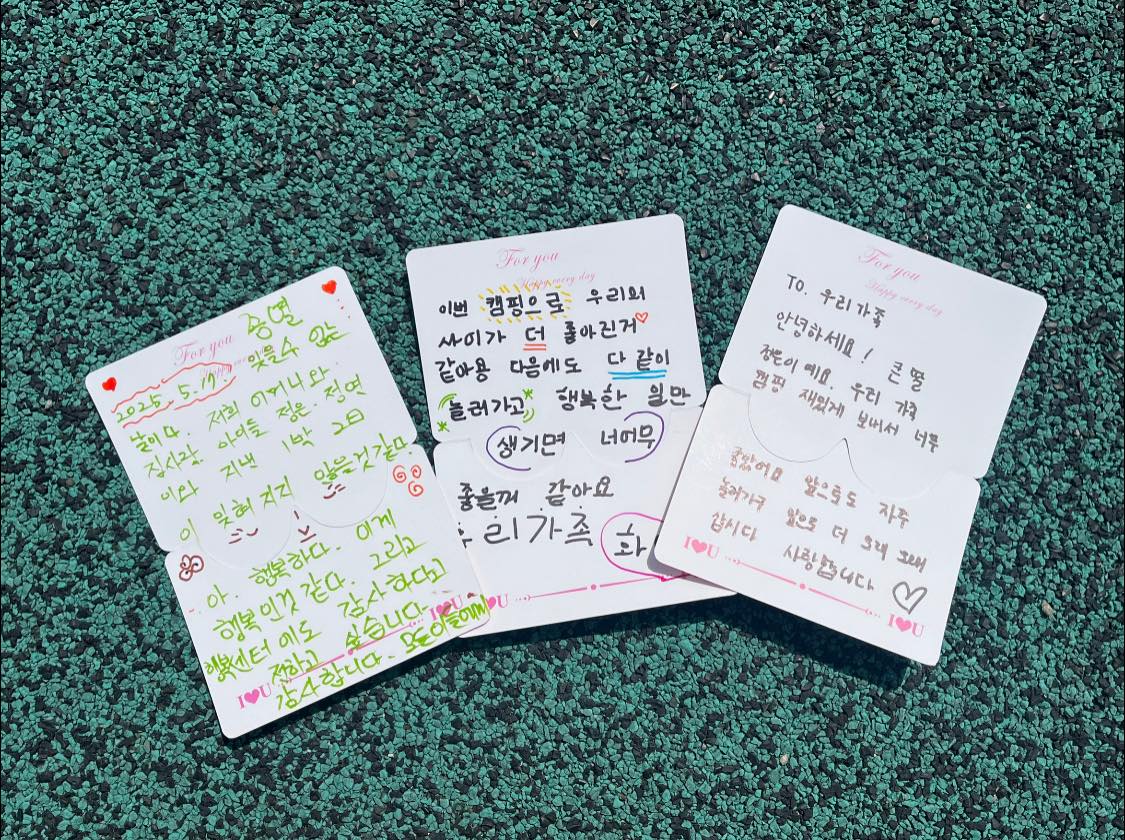 For you
중열
2025. 5. 17. 잊을수 없는
날이다. 저희 어머니와.
집사람. 아이들 정은. 정연
이와 지낸 1박 2일
이 잊혀지지 않을것 같다
아. 행복하다. 이게
행복인것 같다. 그리고
행복센터에도 감사하다고
전하고 싶습니다.
감사합니다. 모든이들에게
I U
For you
Happy every day
이번 캠핑으로 우리의
사이가 더 좋아진거
같아용 다음에도 다 같이
놀러가고 행복한 일만
생기면 너어무
좋을꺼 같아요
우리가족
I U
For you
Happy every day
TO. 우리가족
안녕하세요! 큰 딸
정은이 예요. 우리 가족
캠핑 재밌게 보내서 너무
좋았어요 앞으로도 자주
놀러가구 앞으로 더 오래 오래
삽시다 사랑합니다
I U I U